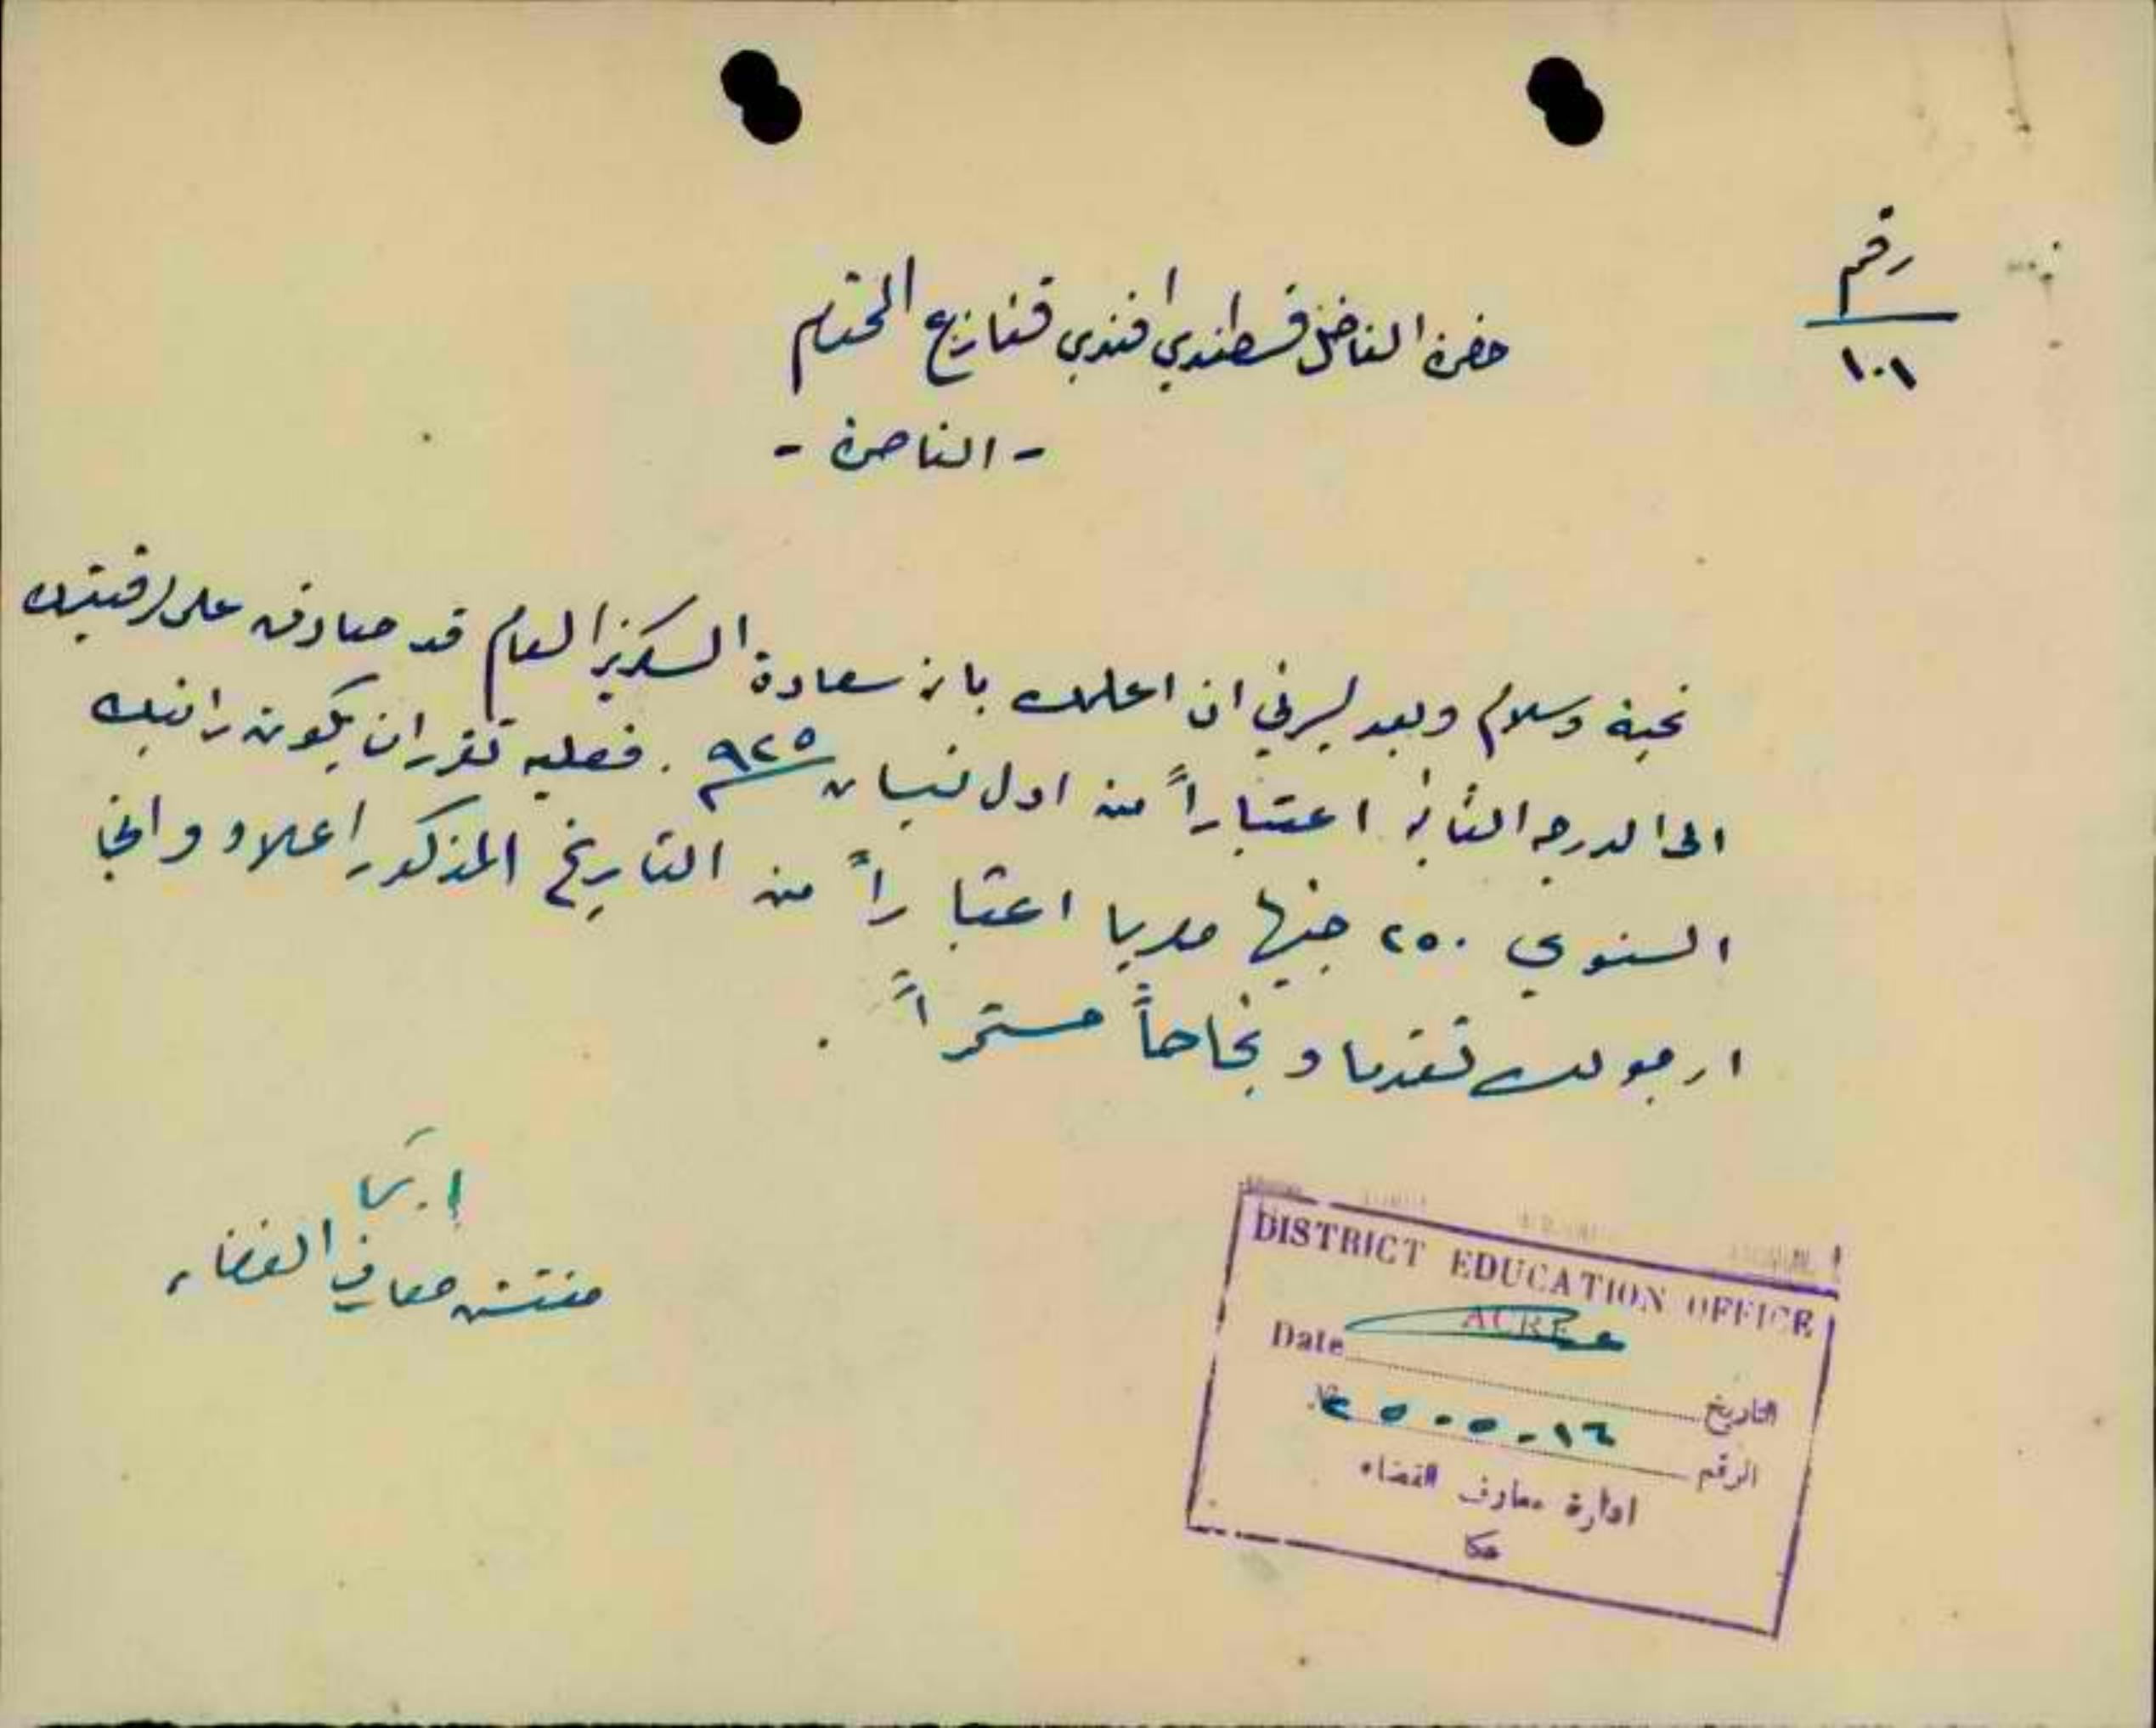 رقم
١٠١
حضرة الفاضل قسطندي افندي قنازع المحترم
- الناصرة -
تحية وسلام وبعد يسرني ان اعلمك بان سعادة السكرتير العام قد صادق على ترقيتك
الى الدرجه الثانية اعتباراً من اول نيسان ٩٢٥ . فعليه تقرر ان يكون راتبك
السنوي ٢٥٠ جنيها مصريا اعتباراً من التاريخ المذكور اعلاه وانني
ارجو لك تقدما ونجاحاً مستمراً .
مفتش معارف القضاء
DISTRICT EDUCATION OFFICE
ACRE
Date التاريخ
١٦-٥-٢٥ الرقم
ادارة معارف القضاء
عكا